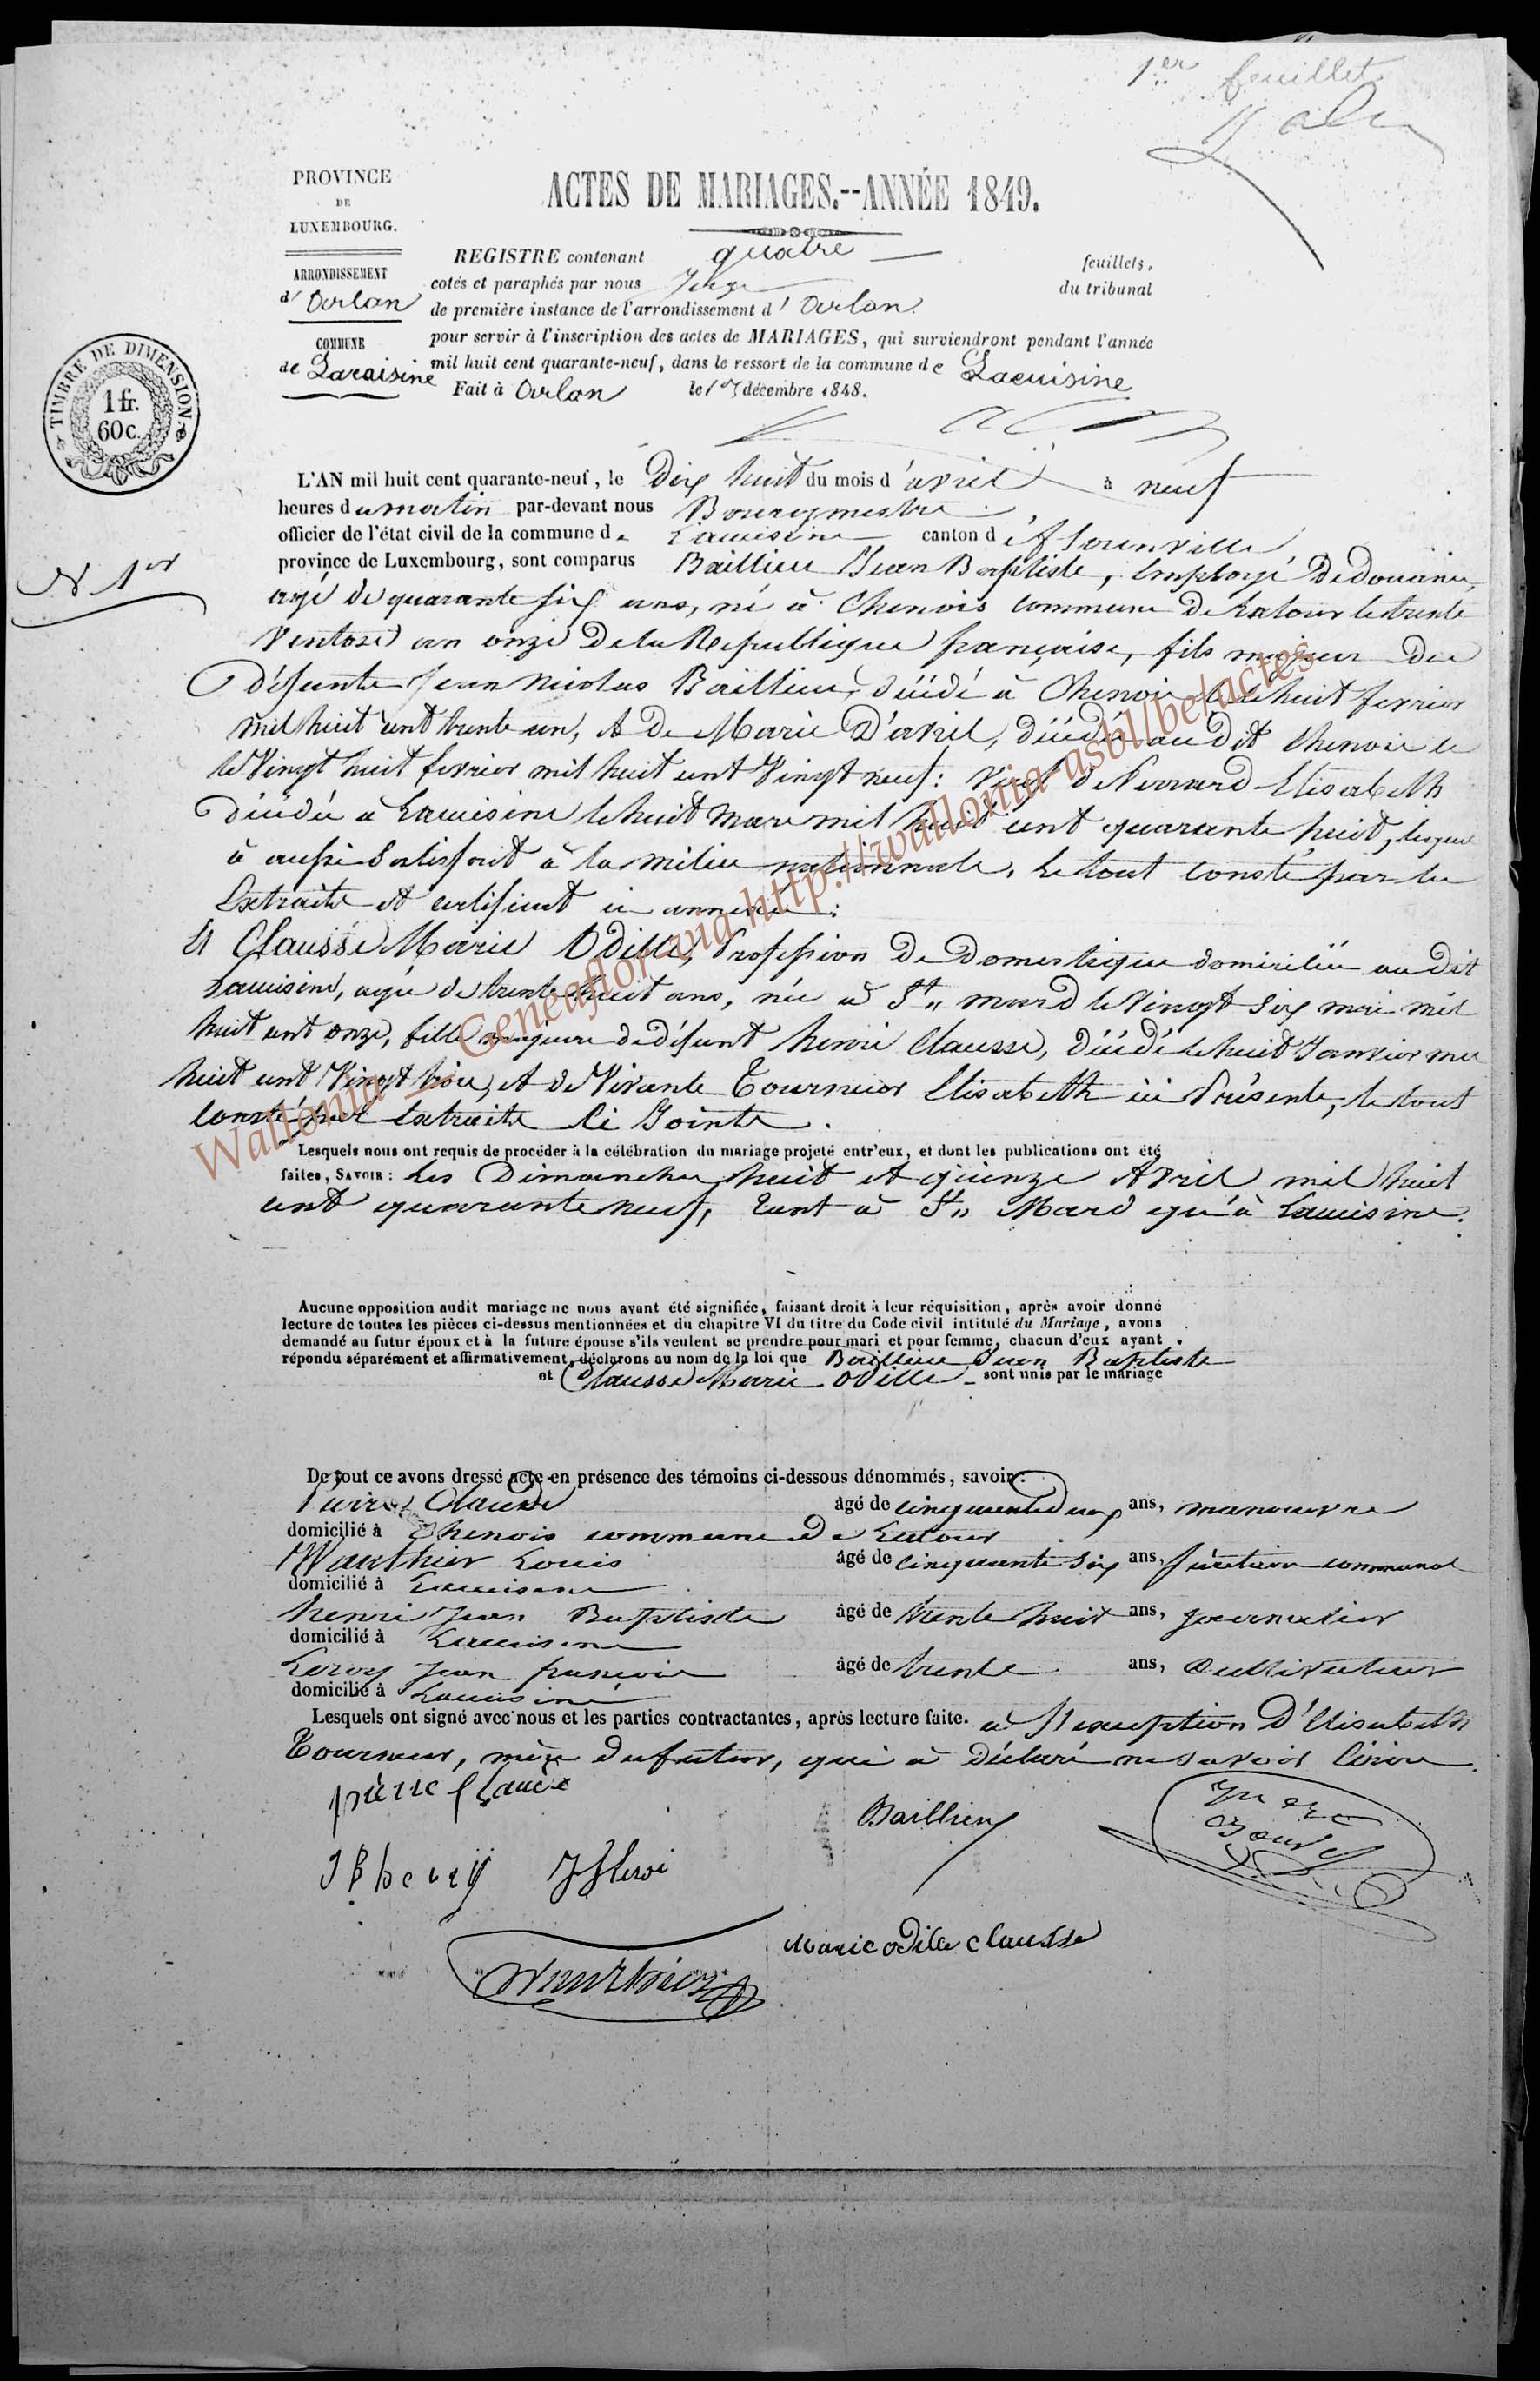 1er feuillet
PROVINCE
DE
LUXEMBOURG.
ARRONDISSEMENT
d'Arlon
COMMUNE
de Lacuisine
ACTES DE MARIAGES.--ANNÉE 1849.
REGISTRE contenant quatre feuillets,
cotés et paraphés par nous Juge du tribunal
de première instance de l'arrondissement d'Arlon
pour servir à l'inscription des actes de MARIAGES, qui surviendront pendant l'année
mil huit cent quarante-neuf, dans le ressort de la commune de Lacuisine
Fait à Arlon le décembre 1848.
TIMBRE DE DIMENSION
1 fr.
60 c.
N 1er
L'AN mil huit cent quarante-neuf, le Dix huit du mois d'avril à neuf
heures du matin par-devant nous Bourgmestre
officier de l'état civil de la commune de Lacuisine canton de florenville
province de Luxembourg, sont comparus Baillieu Jean Baptiste, Employé De douane,
agé de quarante six ans, né à Chenois commune De Latour le trente
Ventose an onze De la Republique française, fils majeur De
défunte Jean Nicolas Baillieu, décédé à Chenois le huit fevrier
mil huit cent trente un, et De Marie D'avril, décédée au dit Chenois le
le Vingt huit fevrier mil huit cent Vingt neuf: Veuf de Perrard Elisabeth
Décédée à Lacuisine le huit mars mil huit cent quarante huit, lequel
à aussi Satisfait à la milice nationnale. Le tout consté par les
Extraits et certificat ci annexés:
Et Clausse Marie Odille, Profession De Domestique domiciliée au dit
Lacuisine, agée de trente huit ans, née à St,, mard le Vingt six mai mil
huit cent onze, fille majeure de défunt henri Clausse, décédé le huit Janvier mil
huit cent Vingt trois, et de Vivante Tourneur Elisabeth ici Présente, le tout
consté par Extraits Ci Jointe.
Lesquels nous ont requis de procéder à la célébration du mariage projeté entr'eux, et dont les publications ont été
faites, SAVOIR: Les Dimanches huit et quinze Avril mil huit
cent quarante neuf, tant à St,, Mard qu'à Lacuisine.
Aucune opposition audit mariage ne nous ayant été signifiée, faisant droit à leur réquisition, après avoir donné
lecture de toutes les pièces ci-dessus mentionnées et du chapitre VI du titre du Code civil intitulé du Mariage, avons
demandé au futur époux et à la future épouse s'ils veulent se prendre pour mari et pour femme, chacun d'eux ayant
répondu séparément et affirmativement, déclarons au nom de la loi que Baillieu Jean Baptiste
et Clausse Marie Odille sont unis par le mariage
De tout ce avons dressé acte en présence des témoins ci-dessous dénommés, savoir:
Claude âgé de cinquante deux ans, manoeuvre
domicilié à Chenois commune De Latour
Wauthier Louis âgé de cinquante six ans, communal
domicilié à Lacuisine
henri Jean Baptiste âgé de trente huit ans, journalier
domicilié à Lacuisine
Leroy Jean françois âgé de trente ans, Cultivateur
domicilié à Lacuisine
Lesquels ont signé avec nous et les parties contractantes, après lecture faite. à l'exception D'Elisabeth
Tourneur, mère du futur, qui à Déclaré ne savoir Ecrire.
pierre claude
Baillieu
JB henry JfLeroi
Marie odille clausse
Wauthier
Wallonia - Geneaflor via http://wallonia-asbl/be/actes